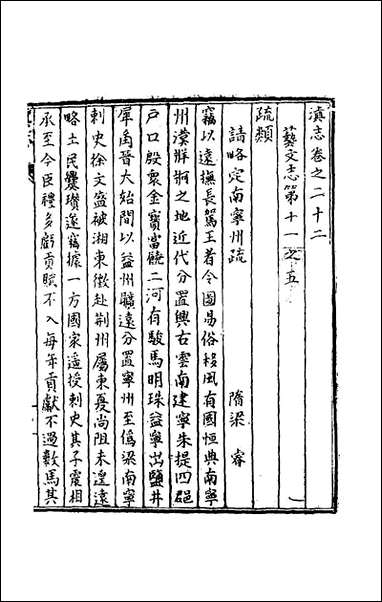 滇志卷之二十二
藝文志第十一之五
疏類
請略定南寧州疏
隋梁睿
竊以遠撫長駕王者令圖易俗移風有國恒典南寧
州漢牂牁之地近代分置興古雲南建寧朱提四郡
戶口殷衆金寶富饒二河有駿馬明珠益寧出鹽井
犀角晉太始間以益州曠遠分置寧州至僞梁南寧
刺史徐文盛被湘東徵赴荆州屬東夏尚阻未遑遠
略土民爨瓚遂竊據一方國家遥授刺史其子震相
承至今臣禮多虧貢賦不入每年貢獻不過數馬其